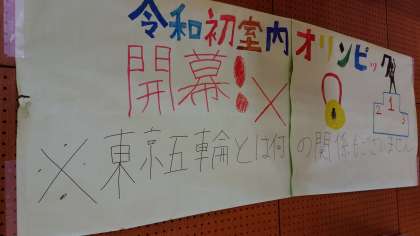 令和初室内オリンピック
開幕!
※東京五輪とは何の関係もございません
2 1 3